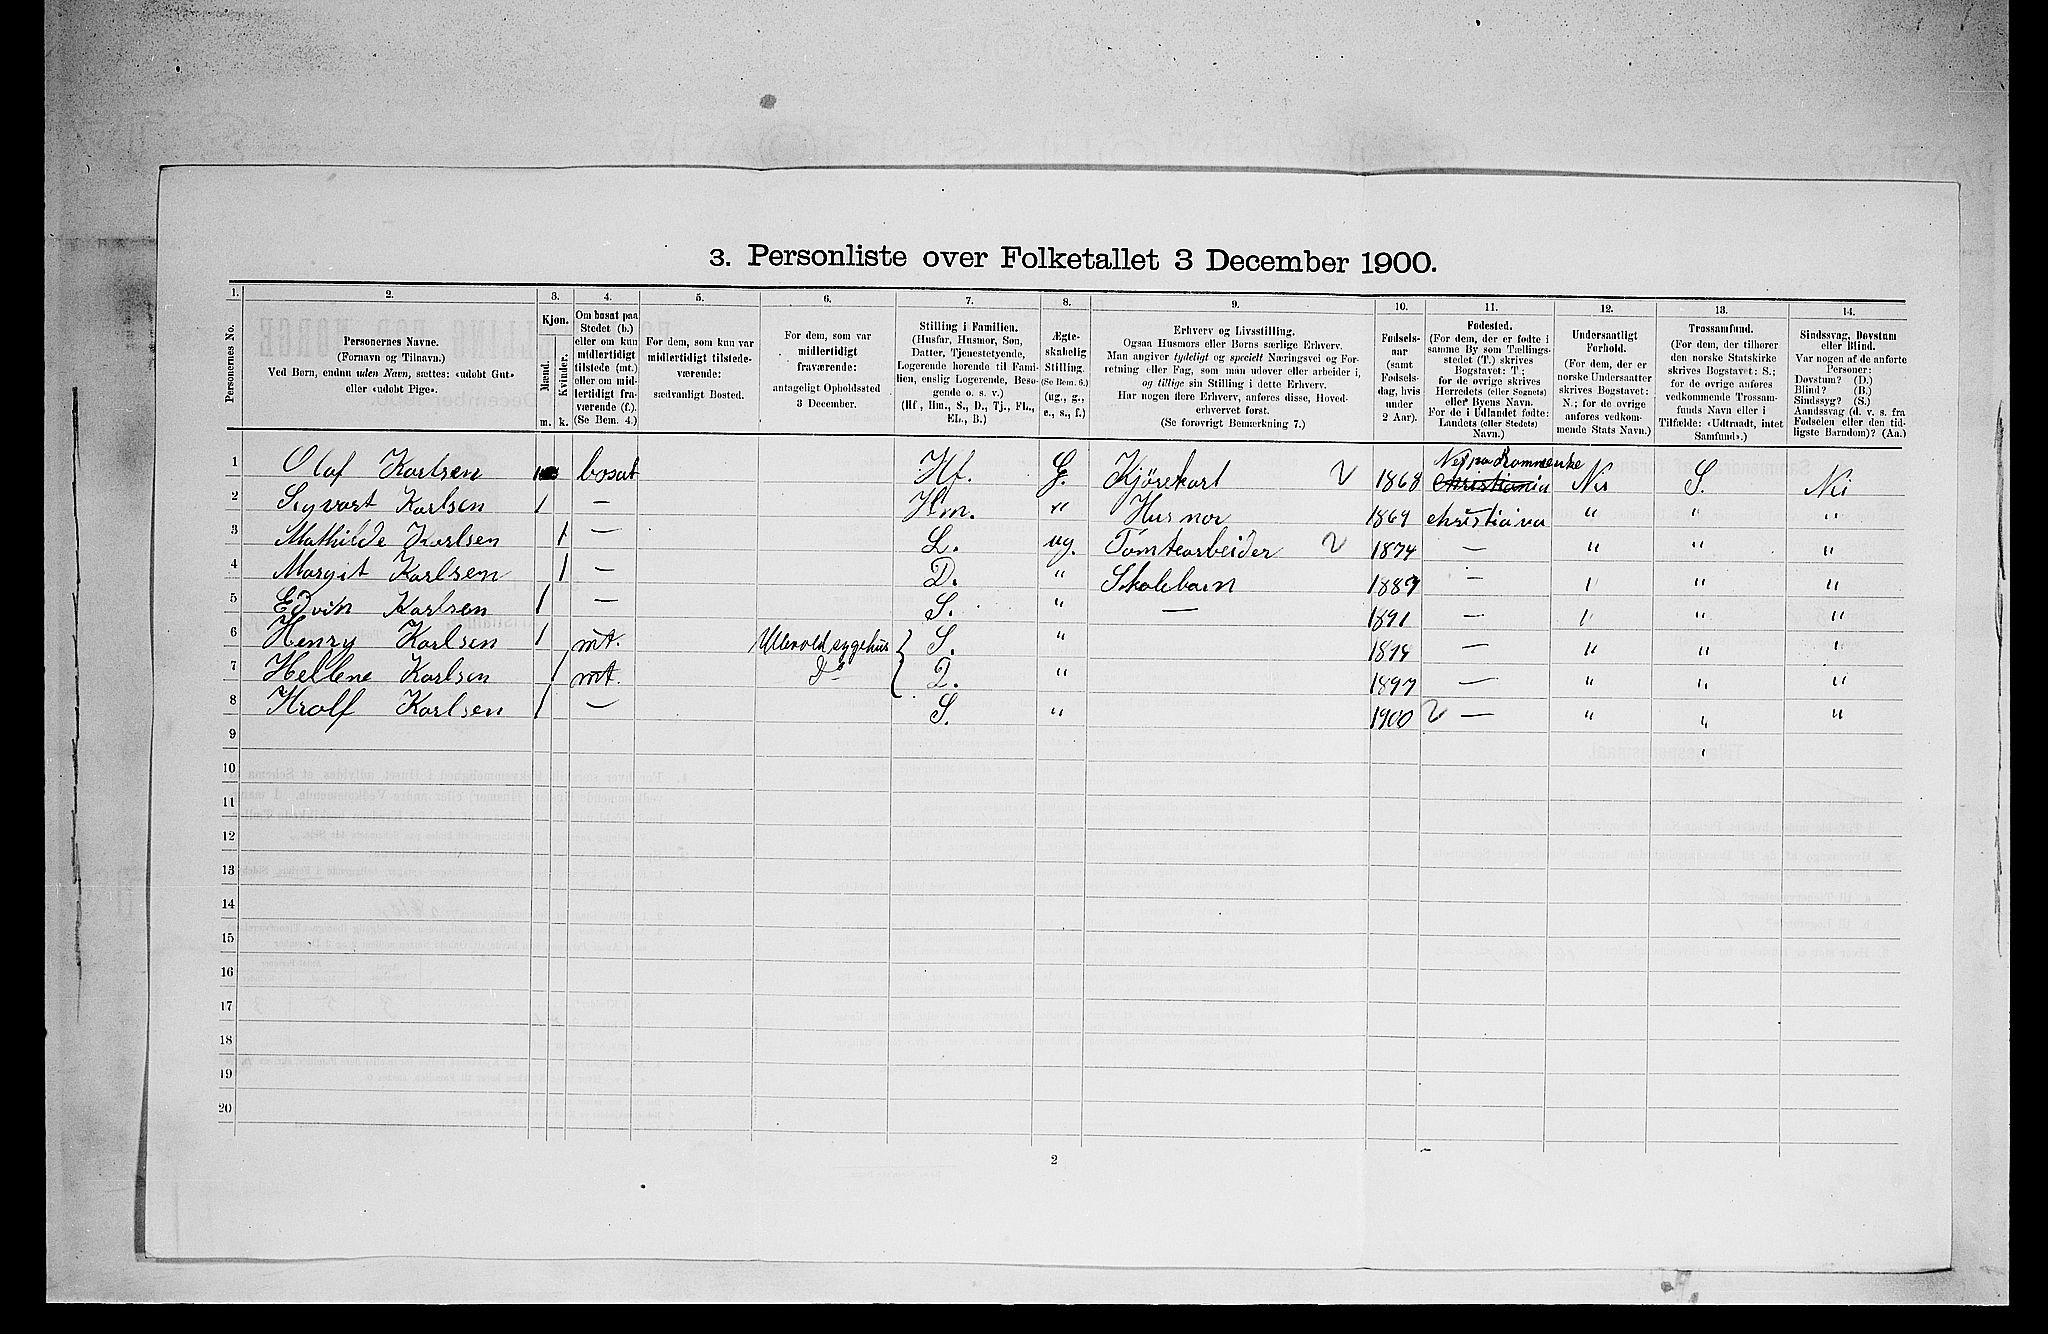 3. Personliste over Folketallet 3 December 1900.
1. 2. 3. 4. 5. 6. 7. 8. 9. 10. 11. 12. 13. 14.
Personernes No.
Personernes Navne.
(Fornavn og Tilnavn.)
Ved Børn, endnu uden Navn, sættes: «udøbt Gut»
eller «udøbt Pige».
Kjøn.
Mænd. Kvinder.
m. k.
Om bosat paa
Stedet (b.)
eller om kun
midlertidigt
tilstede (mt.)
eller om mid-
lertidigt fra-
værende (f.).
(Se Bem. 4.)
For dem, som kun var
midlertidigt tilstede-
værende:
sædvanligt Bosted.
For dem, som var
midlertidigt
fraværende:
antageligt Opholdssted
3 December.
Stilling i Familien.
(Husfar, Husmor, Søn,
Datter, Tjenestetyende,
Logerende hørende til Fami-
lien, enslig Logerende, Besø-
gende o. s. v.)
(Hf., Hm., S., D., Tj., FL.,
EL., B.)
Ægte-
skabelig
Stilling.
(Se Bem. 6.)
(ug., g.,
e., s., f.)
Erhverv og Livsstilling.
Ogsaa Husmors eller Børns særlige Erhverv.
Man angiver tydeligt og specielt Næringsvei og For-
retning eller Fag, som man udover eller arbeider i,
og tillige sin Stilling i dette Erhverv.
Har nogen flere Erhverv, anføres disse, Hoved-
erhvervet først.
(Se forøvrigt Bemærkning 7.)
Fødsels-
aar
(samt
Fødsels-
dag, hvis
under
2 Aar).
Fødested.
(For dem, der er fødte i
samme By som Tællings-
stedet (T.) skrives
Bogstavet: T;
for de øvrige skrives
Herredets (eller Sognets)
eller Byens Navn.
For de i Udlandet fødte:
Landets (eller Stedets)
Navn.)
Undersaatligt
Forhold.
(For dem, der er
norske Undersaatter
skrives Bogstavet:
N.; for de øvrige
anføres vedkom-
mende Stats Navn.)
Trossamfund.
(For dem, der tilhører
den norske Statskirke
skrives Bogstavet: S.;
for de øvrige anføres
vedkommende Trossam-
funds Navn eller i
Tilfælde: «Udtraadt, intet
Samfund».)
Sindssvag, Døvstum
eller Blind.
Var nogen af de anførte
Personer:
Døvstum? (D.)
Blind? (B.)
Sindssyg? (S.)
Aandssvag (d. v. s. fra
Fødselen eller den tid-
ligste Barndom)? (Aa.)
1 Olaf Karlsen 1 bosat Hf. G. Kjörekarl 1868 Christiania S. Nei
2 Sigvart Karlsen 1 — Hm. " Husmor 1869 christiania " " "
3 Mathilde Karlsen 1 — L. ug. Tömtearbeider 1874 — " " "
4 Margit Karlsen 1 — D. " Skolebarn 1889 — " " "
5 Edvin Karlsen 1 — S. " — 1891 — " " "
6 Henry Karlsen 1 mt. Ullevold sygehus S. " — " " "
7 Hellene Karlsen 1 mt. Do D. " 1897 — " " "
8 Hralf Karlsen 1 — S. " 1900 — " " "
9
10
11
12
13
14
15
16
17
18
19
20
2